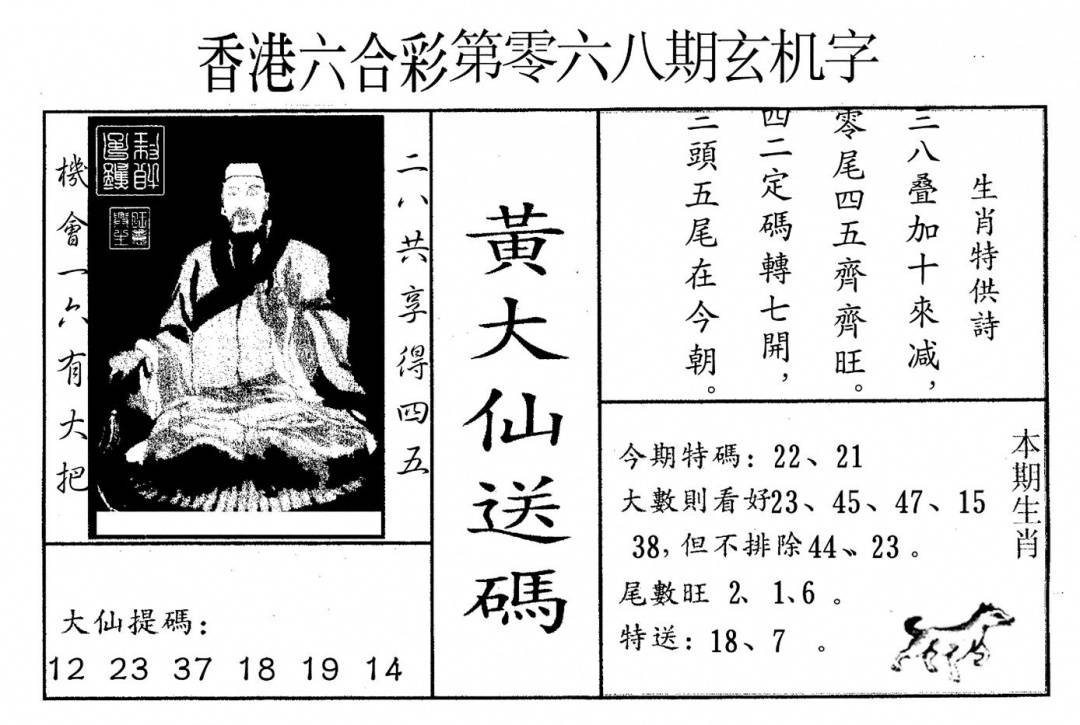 香港六合彩第零六八期玄机字
二八共享得四五
機會一六有大把
大仙提碼：
12 23 37 18 19 14
黃大仙送碼
生肖特供詩
三八叠加十來减，
零尾四五齊齊旺。
四二定碼轉七開，
三頭五尾在今朝。
本期生肖
今期特碼：22、21
大數則看好23、45、47、15
38，但不排除44、23。
尾數旺 2、1、6 。
特送：18、7 。